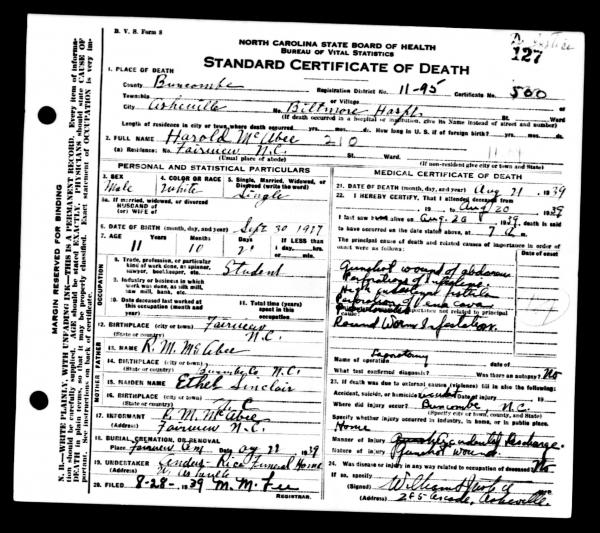 B. V. S. Form 8
127
NORTH CAROLINA STATE BOARD OF HEALTH
BUREAU OF VITAL STATISTICS
STANDARD CERTIFICATE OF DEATH
1. PLACE OF DEATH
County Buncombe Registration District No. 11-95 Certificate No. 500
Township or Village
City Asheville No. Biltmore Hospt. St. Ward
(If death occurred in a hospital or institution, give its Name instead of street and number)
Length of residence in city or town where death occurred. yrs. mos. ds. How long in U. S. if of foreign birth? yrs. mos. ds.
2. FULL NAME Harold McAbee 210
(a) Residence: No. Fairview N.C. St. Ward
(Usual place of abode) (If non-resident give city or town and State)
PERSONAL AND STATISTICAL PARTICULARS
3. SEX Male
4. COLOR OR RACE White
5. Single, Married, Widowed, or Divorced (write the word) Single
5a. If married, widowed, or divorced
HUSBAND of
(or) WIFE of
6. DATE OF BIRTH (month, day, and year) Sept 30 1927
7. AGE 11 10 2
If less than 1 day, hrs. or min.
8. Trade, profession, or particular kind of work done, as spinner, sawyer, bookkeeper, etc. Student
9. Industry or business in which work was done, as silk mill, saw mill, bank, etc.
10. Date deceased last worked at this occupation (month and year)
11. Total time (years) spent in this occupation
12. BIRTHPLACE (city or town) Fairview
(State or country) N.C.
13. NAME R. M. McAbee
14. BIRTHPLACE (city or town)
(State or country) Co. N.C.
15. MAIDEN NAME Ethel Sinclair
16. BIRTHPLACE (city or town)
(State or country) N.C.
17. INFORMANT R. M. McAbee
Fairview N.C.
18. BURIAL, CREMATION, OR REMOVAL
Place Fairview Cem Date Aug 22 1939
19. UNDERTAKER Rice Funeral Home
20. FILED 8-28-1939 M. M. Fee
REGISTRAR.
MEDICAL CERTIFICATE OF DEATH
21. DATE OF DEATH (month, day, and year) Aug 21, 1939
22. I HEREBY CERTIFY, That I attended deceased from
19 to Aug 20 1939
I last saw him alive on Aug. 20 1939, death is said
to have occurred on the date stated above, at 7 m.
The principal cause of death and related causes of importance in order of onset were as follows: Date of onset
Gunshot wound of abdomen
Perforations of
High intestinal fistula
Perforation of Vena Cava
Round Worm Infestation.
Name of operation Laparotomy Date of
What test confirmed diagnosis? Was there an autopsy? No
23. If death was due to external causes (violence) fill in also the following:
Accident, suicide, or homicide Date of injury 19
Where did injury occur? Buncombe, N.C.
(Specify city or town, county, and State)
Specify whether injury occurred in industry, in home, or in public place.
Home
Manner of injury accidental discharge.
Nature of injury gunshot wound.
24. Was disease or injury in any way related to occupation of deceased? No
If so, specify
(Signed) William
(Address) Arcade, Asheville.
FATHER
MOTHER
MARGIN RESERVED FOR BINDING
N. B.—WRITE PLAINLY, WITH UNFADING INK—THIS IS A PERMANENT RECORD. Every item of information should be carefully supplied. AGE should be stated EXACTLY. PHYSICIANS should state CAUSE OF DEATH in plain terms, so that it may be properly classified. Exact statement of OCCUPATION is very important. See instructions on back of certificate.